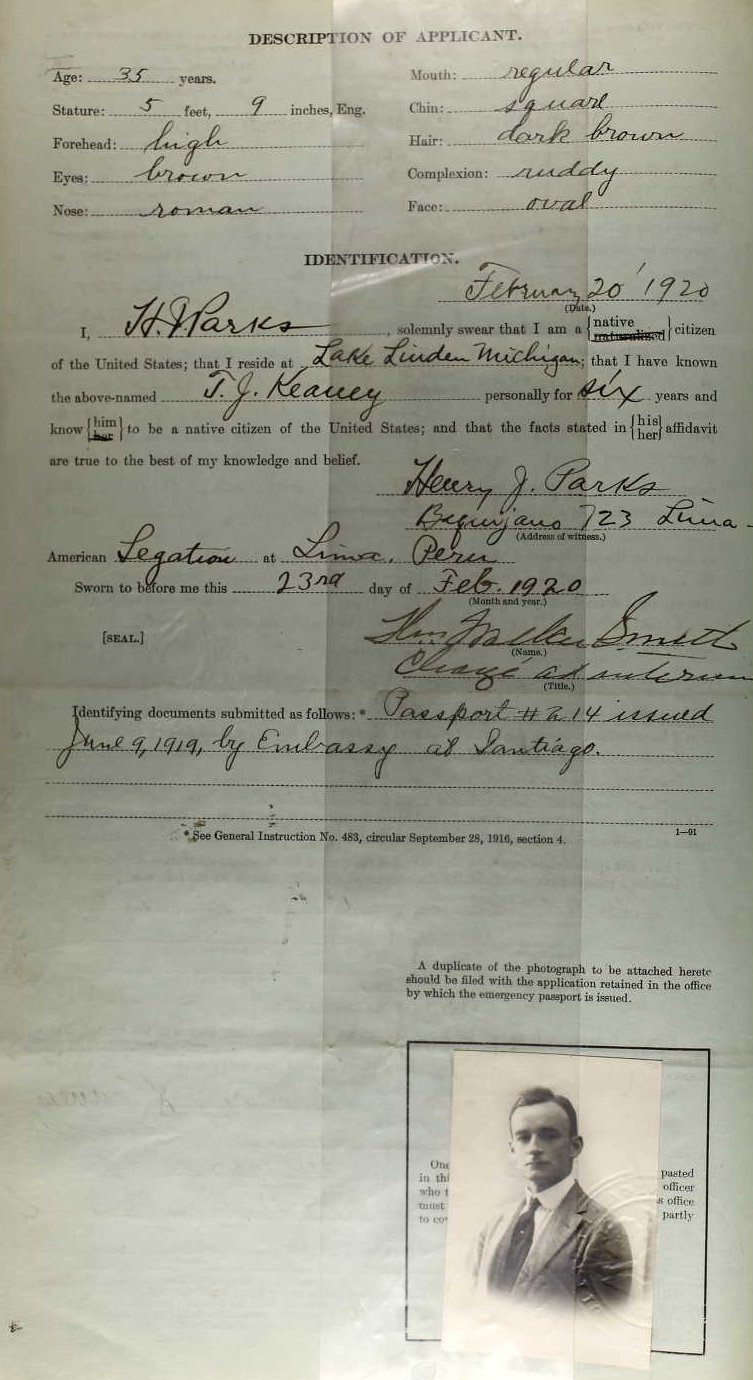 DESCRIPTION OF APPLICANT.
Age: 35 years.
Mouth: regular
Stature: 5 feet, 9 inches, Eng.
Chin: square
Forehead: high
Hair: dark brown
Eyes: brown
Complexion: ruddy
Nose: roman
Face: oval
IDENTIFICATION.
February 20' 1920
(Date.)
I, H. J. Parks, solemnly swear that I am a {native naturalized} citizen
of the United States; that I reside at Lake Linden Michigan; that I have known
the above-named T. J. Keaney personally for six years and
know {him her} to be a native citizen of the United States; and that the facts stated in {his her} affidavit
are true to the best of my knowledge and belief.
Henry J. Parks
Baquijano 723 Lima -
(Address of witness.)
American Legation at Lima, Peru
Sworn to before me this 23rd day of Feb. 1920
(Month and year.)
[SEAL.]
Wm Walker Smith
(Name.)
Chargé ad interim
(Title.)
Identifying documents submitted as follows:* Passport # 214 issued
June 9, 1919, by Embassy at Santiago.
* See General Instruction No. 483, circular September 28, 1916, section 4.
1—91
A duplicate of the photograph to be attached hereto
should be filed with the application retained in the office
by which the emergency passport is issued.
One pasted
in thi officer
who t s office
must partly
to co